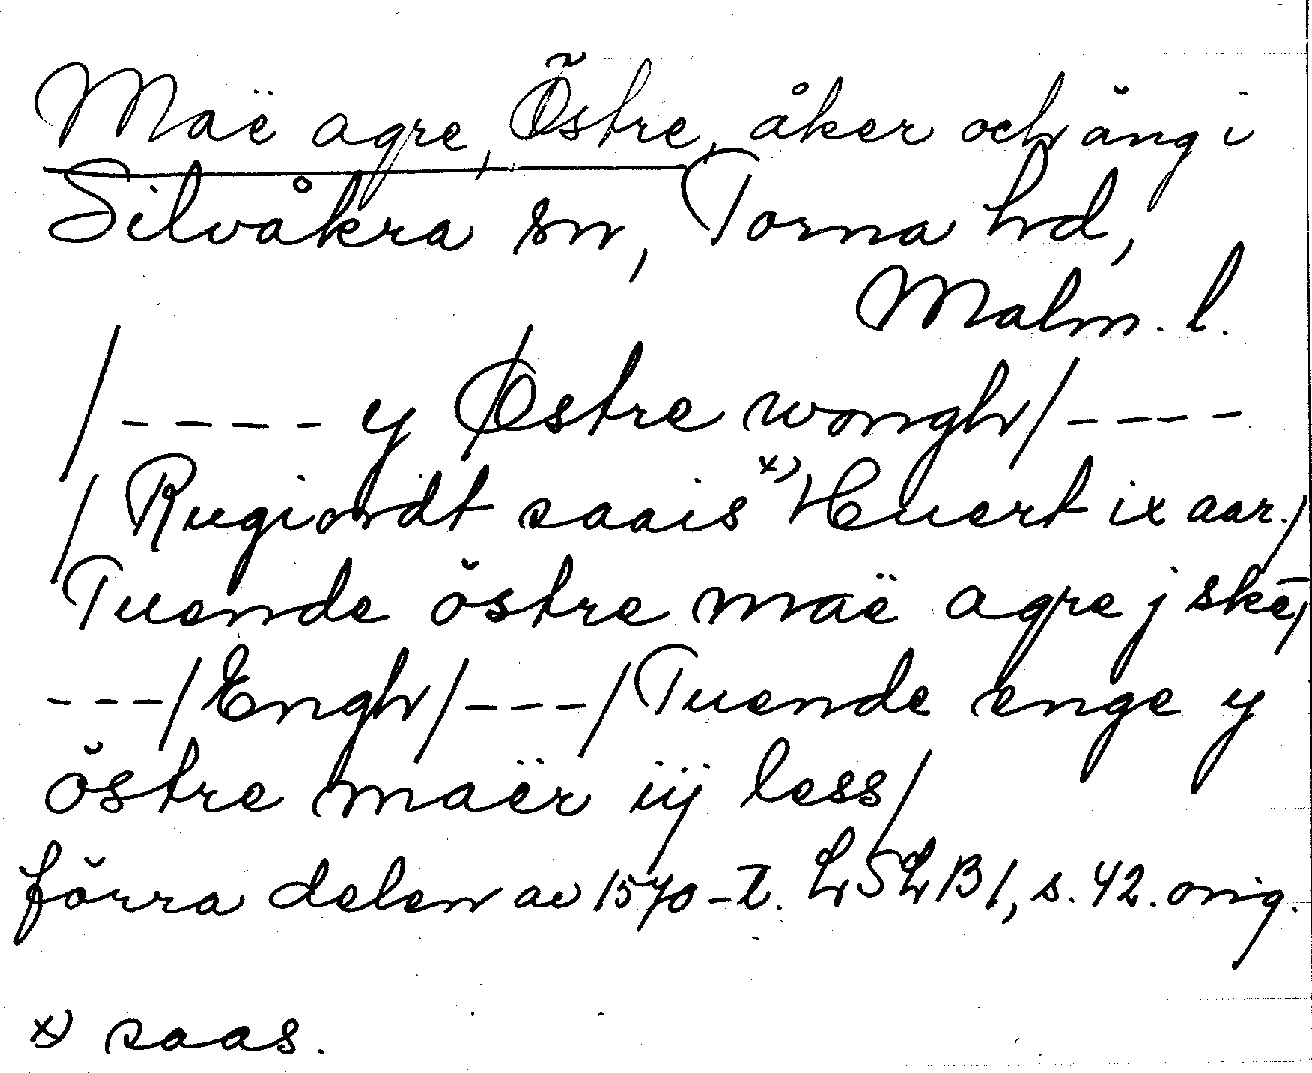 Maë agre, Östre, åker och äng i
Silvåkra sn, Torna hd,
Malm. l.
/----- y Østre wongh/----
/Rugiordt saais x) Huert ix aar./
Tuende östre maë agre j ske,
---/Engh/---/Tuende enge y
östre maër iij less/
förra delen av 1570-t. LSLB1, s. 42. orig.
x) saas.